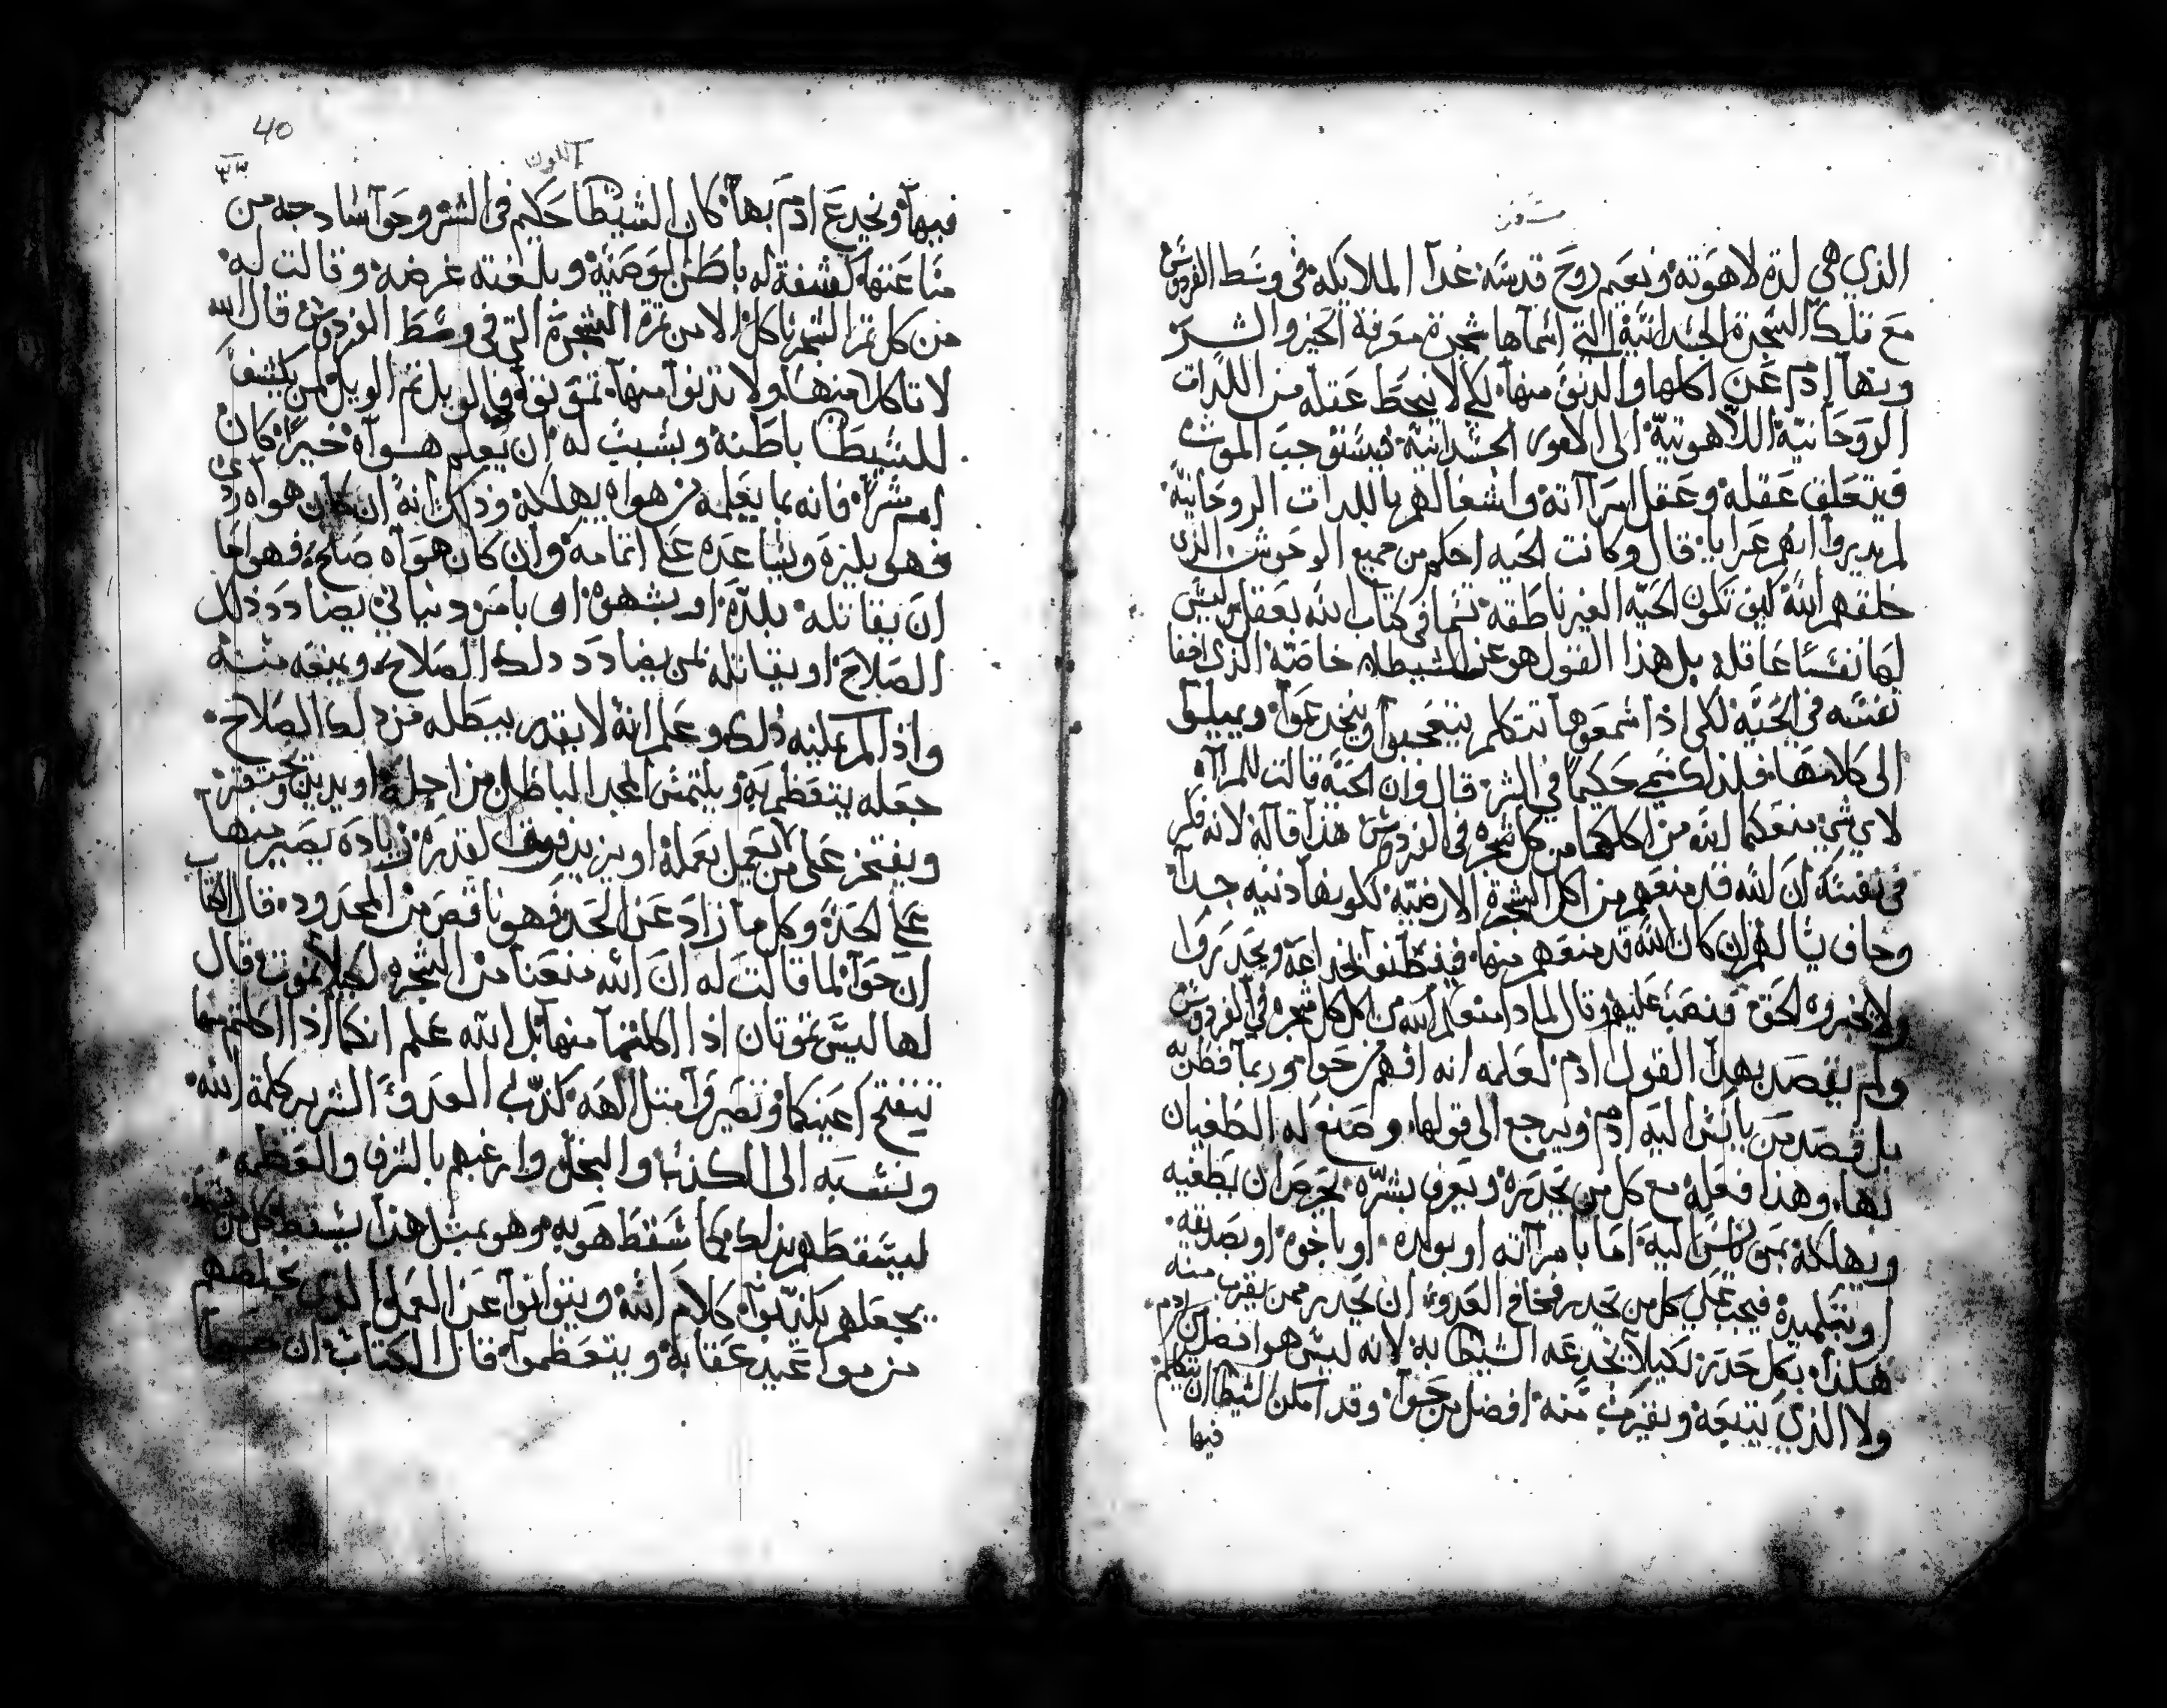 الذي هي لذة لاهوته ونعيم روح قدسه غدآ الملايكه فى وسط الفردوس
مع تلك الشجرة الجسدانيّة التي اسماها شجرة معرفة الخير والشر
ونهآ ادم عن اكلها والدنوّ منها لكي لا ينحط عقله من اللدات
الروحانيّة اللاهوتيّة الى الامور الجسدانية فيستوجب الموت
فتعلق عقله وعقل امرآاته واشغالهم باللدات الروحانيّة
لم يدروآ انهم عرايا قال وكانت الحيه احكم من جميع الوحوش الذي
خلقهم الله كيف تكون الحيّه الغير ناطقه تسما فى كتاب الله بعقل وليس
لها نفسًا عاقله بل هذا القول هو عن الشيطان خاصّة الذي اخفا
نفسه في الحيّه لكى اذا سمعوها تتكلم يتعجبوآ وينخدعوآ ويميلوآ
الى كلامها فلذلك سمي حكيمًا في الشر قال وان الحيّه قالت للمرآه
لاي شي منعكما الله من اكلكما من كل شجره فى الفردوس هذا قاله لانه فكر
في نفسه ان الله قد منعهم من اكل الشجرة الارضيّه لكونها دنيه جدآ
وخاف يسالهم ان كان الله قد منعهم منها فيفطنوآ لخداعه ويحدروآ
ولا يخبروه الحق فنصب عليهم وقال لمادا منعكم الله من اكل كل شجره في الفردوس
ولم يقصد بهدآ القول ادم لعلمه انه افهم من حوآ وربما فطن به
بل قصد من يانس اليه ادم ويرجع الى قولها وصنع له الطغيان
بها وهذا فعله مع كل من يحدره ويعرف بشرّه يحرص ان يطغيه
ويهلكه بمن يانس اليه اما بامرآاته او بولده او باخوه او بصديقه
او بتلميده فيجب علي كل من يحدر فخاخ العدوّ ان يحدر ممن يقرب منه
هكذا بكل حدر لكيلا يخدعه الشيطان به لانه ليس هو افضل من ادم
ولا الذي يتبعه ويقرب منه افضل من حوآ وقد امكن الشيطان ان يتكلم
فيها
40
فيهآ ويخدع ادم بها كان الشيطان حكيم فى الشر وحوآ سادجه من
كشفة له باطن الوصيّة وبلغته غرضه وقالت له
من كل تمرا الشجر ناكل الا من تمرة الشجرة التي في وسط الفردوس قال الله
لا تاكلا منها ولا تدنوآ منها تموتو فالويل تم الويل لمن يكشف
للشيطان باطنه ويسبب له ان يعلم هوآه خيرًا كان
ام شرآ فانه بما يعلمه من هواه يهلكه وذلك انه ان كان هواه ردي
فهو يلزه ويساعده على اتمامه وان كان هوآه صلح فهو اما
ان يقاتله بلدّة او بشهوة او بامر دنياني يضادد ذلك
الصلاح او يقاتله بمن يضادد دلك الصلاح ويمنعه منه
واذا كمر عليه ذلك وعلم انه لا يقدر يبطله من دلك الصلاح
جعله يتعظم به ويلتمس المجد الباطل من اجله او يدين ويحتقر
ويفتخر على من لا يعمل بعمله او يزيد فوق القدره زياده يصير بها
على الحدّ وكل ما زاد عن الحد فهو ناقص من المحدود قال الكتاب
ان حوّآ لما قالت له ان الله منعنا من الشجره لكيلا نموت قال
لها ليس تموتان اذا اكلتمآ منها بل الله علم انكما اذا اكلتم منها
تنفتح اعينكما وتصيروآ متل الهه كدّب العدوّ الشرير كلمة الله
ونسبه الى الكذب والبخل وارغبهم بالشرف والعظمه
ليسقطهم بذلك كما سقط هو به وهو بمثل هذا يسقط كل من
يجعلهم يكذّبوآ كلام الله ويتوانوآ عن العمل الذي يخلصهم
من مواعيد عقابه ويتعظموآ قال الكتاب ان حوآ